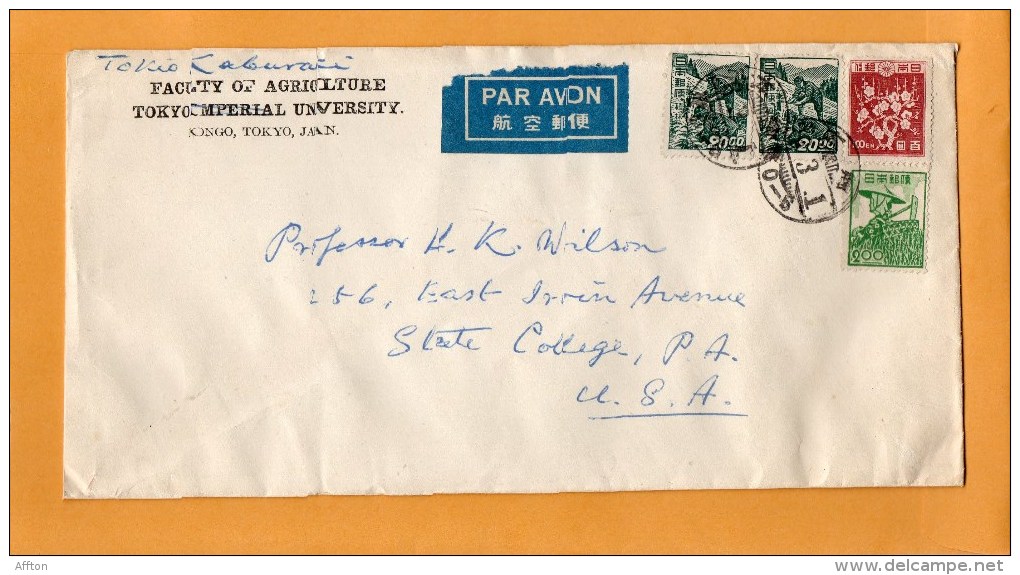 Tokio Kaburaki
FACULTY OF AGRICULTURE
TOKYO IMPERIAL UNIVERSITY.
HONGO, TOKYO, JAPAN.
PAR AVION
航空郵便
日本郵便
20.00
日本郵便
20.00
日本郵便
100EN
百圓
日本郵便
2.00
Professor H. K. Wilson
256, East Irvin Avenue
State College, P.A.
U.S.A.
Affton
delcampe.net